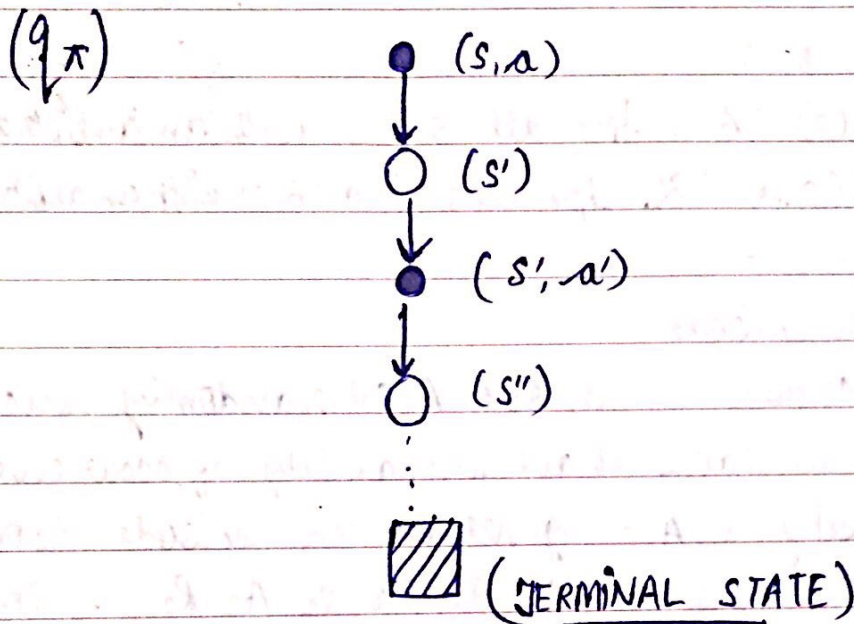 (qπ)
(s,a)
(s')
(s', a')
(s")
(TERMINAL STATE)